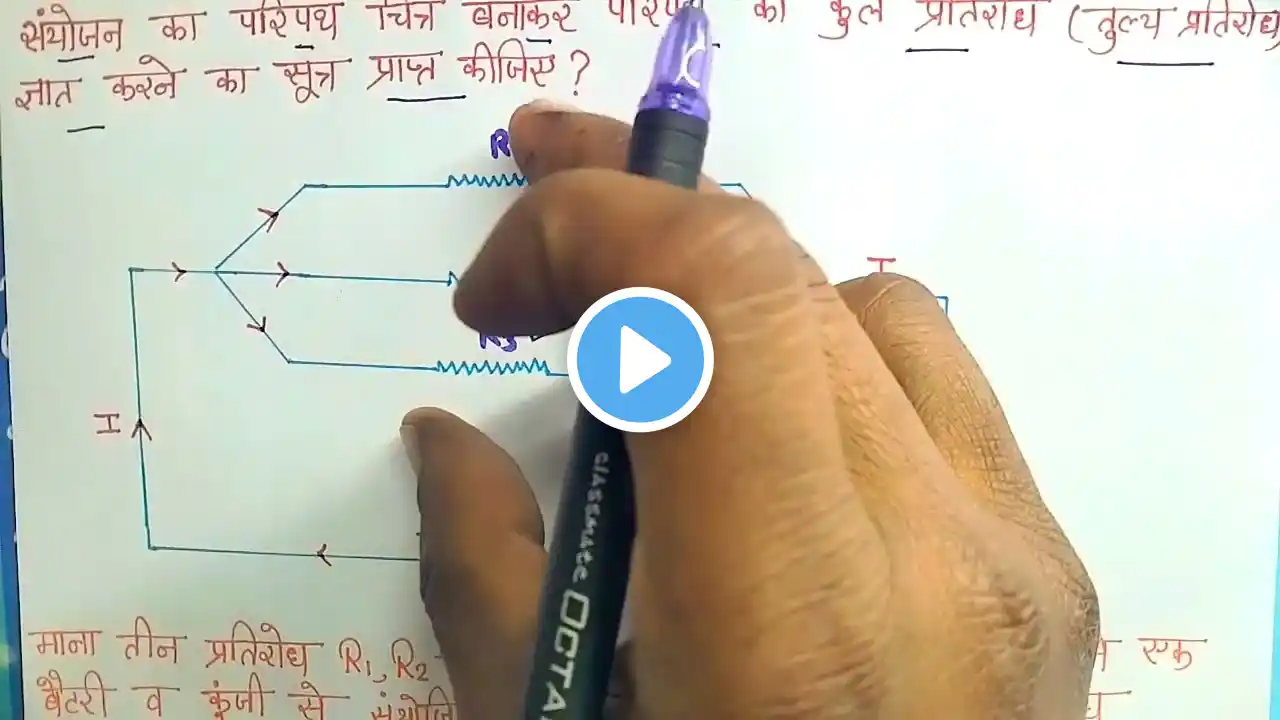 संयोजन का परिपथ चित्र बनाकर का कुल प्रतिरोध (तुल्य प्रतिरोध)
ज्ञात करने का सूत्र प्राप्त कीजिए ?
R
I
R3
I
classmate OCTA
माना तीन प्रतिरोध R1, R2 एक
बैटरी व कुंजी से